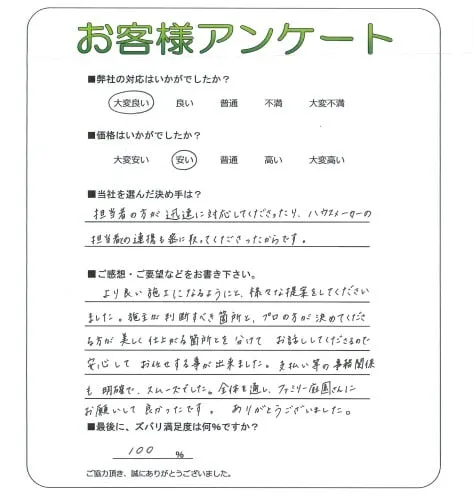 お客様アンケート
■弊社の対応はいかがでしたか？
大変良い 良い 普通 不満 大変不満
■価格はいかがでしたか？
大変安い 安い 普通 高い 大変高い
■当社を選んだ決め手は？
担当者の方が迅速に対応してくださったり、ハウスメーカーの
担当者の連携も密に取ってくださったからです。
■ご感想・ご要望などをお書き下さい。
より良い施工になるようにと、様々な提案をしてください
ました。施主が判断すべき箇所と、プロの方が決めてくださ
る方が美しく仕上がる箇所とを分けてお話ししてくださるので
安心してお任せする事が出来ました。支払い等の事務関係
も明確で、スムーズでした。全体を通し、ファミリー庭園さんに
お願いして良かったです。ありがとうございました。
■最後に、ズバリ満足度は何%ですか？
100 %
ご協力頂き、誠にありがとうございました。